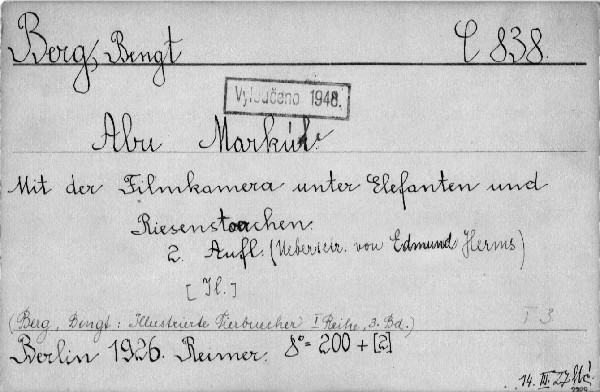 Berg, Bengt C 838.
Vyloučeno 1948.
Abu Markúb.
Mit der Filmkamera unter Elefanten und
Riesenstoerchen.
2. Aufl. (Uebersetr. von Edmund Herms)
[Il.]
(Berg, Bengt: Illustrierte Tierbuecher I Reihe, 3. Bd.) I 3
Berlin 1926. Reimer. 8° = 200 + [2]
14. III. 27